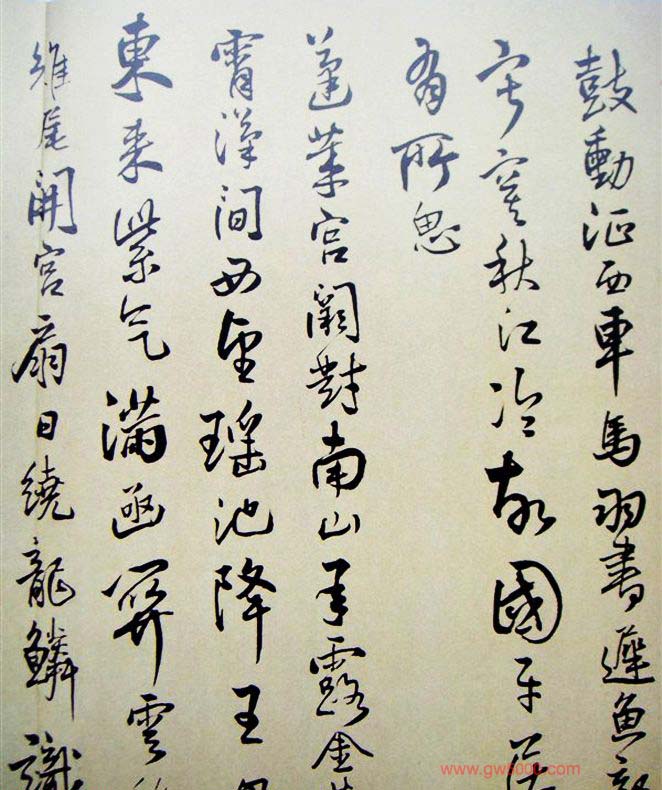 鼓動征西車馬羽書遲魚
寂寞秋江冷故國平居
有所思
蓬萊宮闕對南山承露金
霄漢間西望瑤池降王
東来紫气滿函關雲
雉尾開宮扇日繞龍鱗識